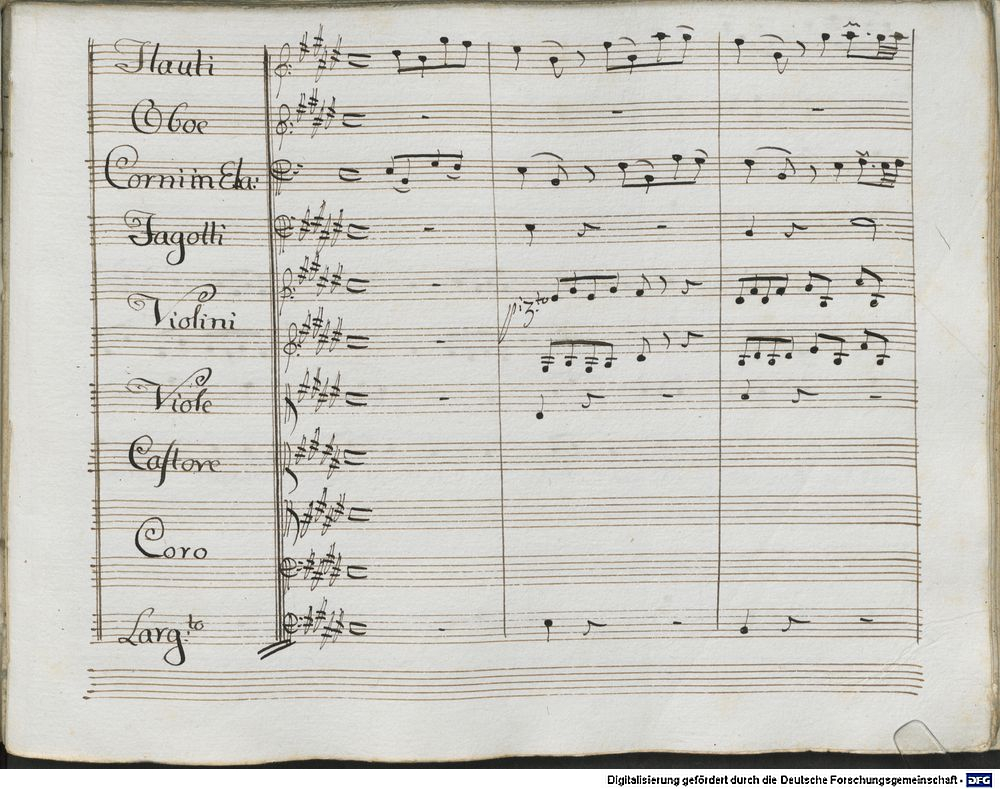 Flauti
Oboe
Corni in Ela:
Fagotti
Violini
piz:to
Viole
Castore
Coro
Larg:to
Digitalisierung gefördert durch die Deutsche Forschungsgemeinschaft - DFG